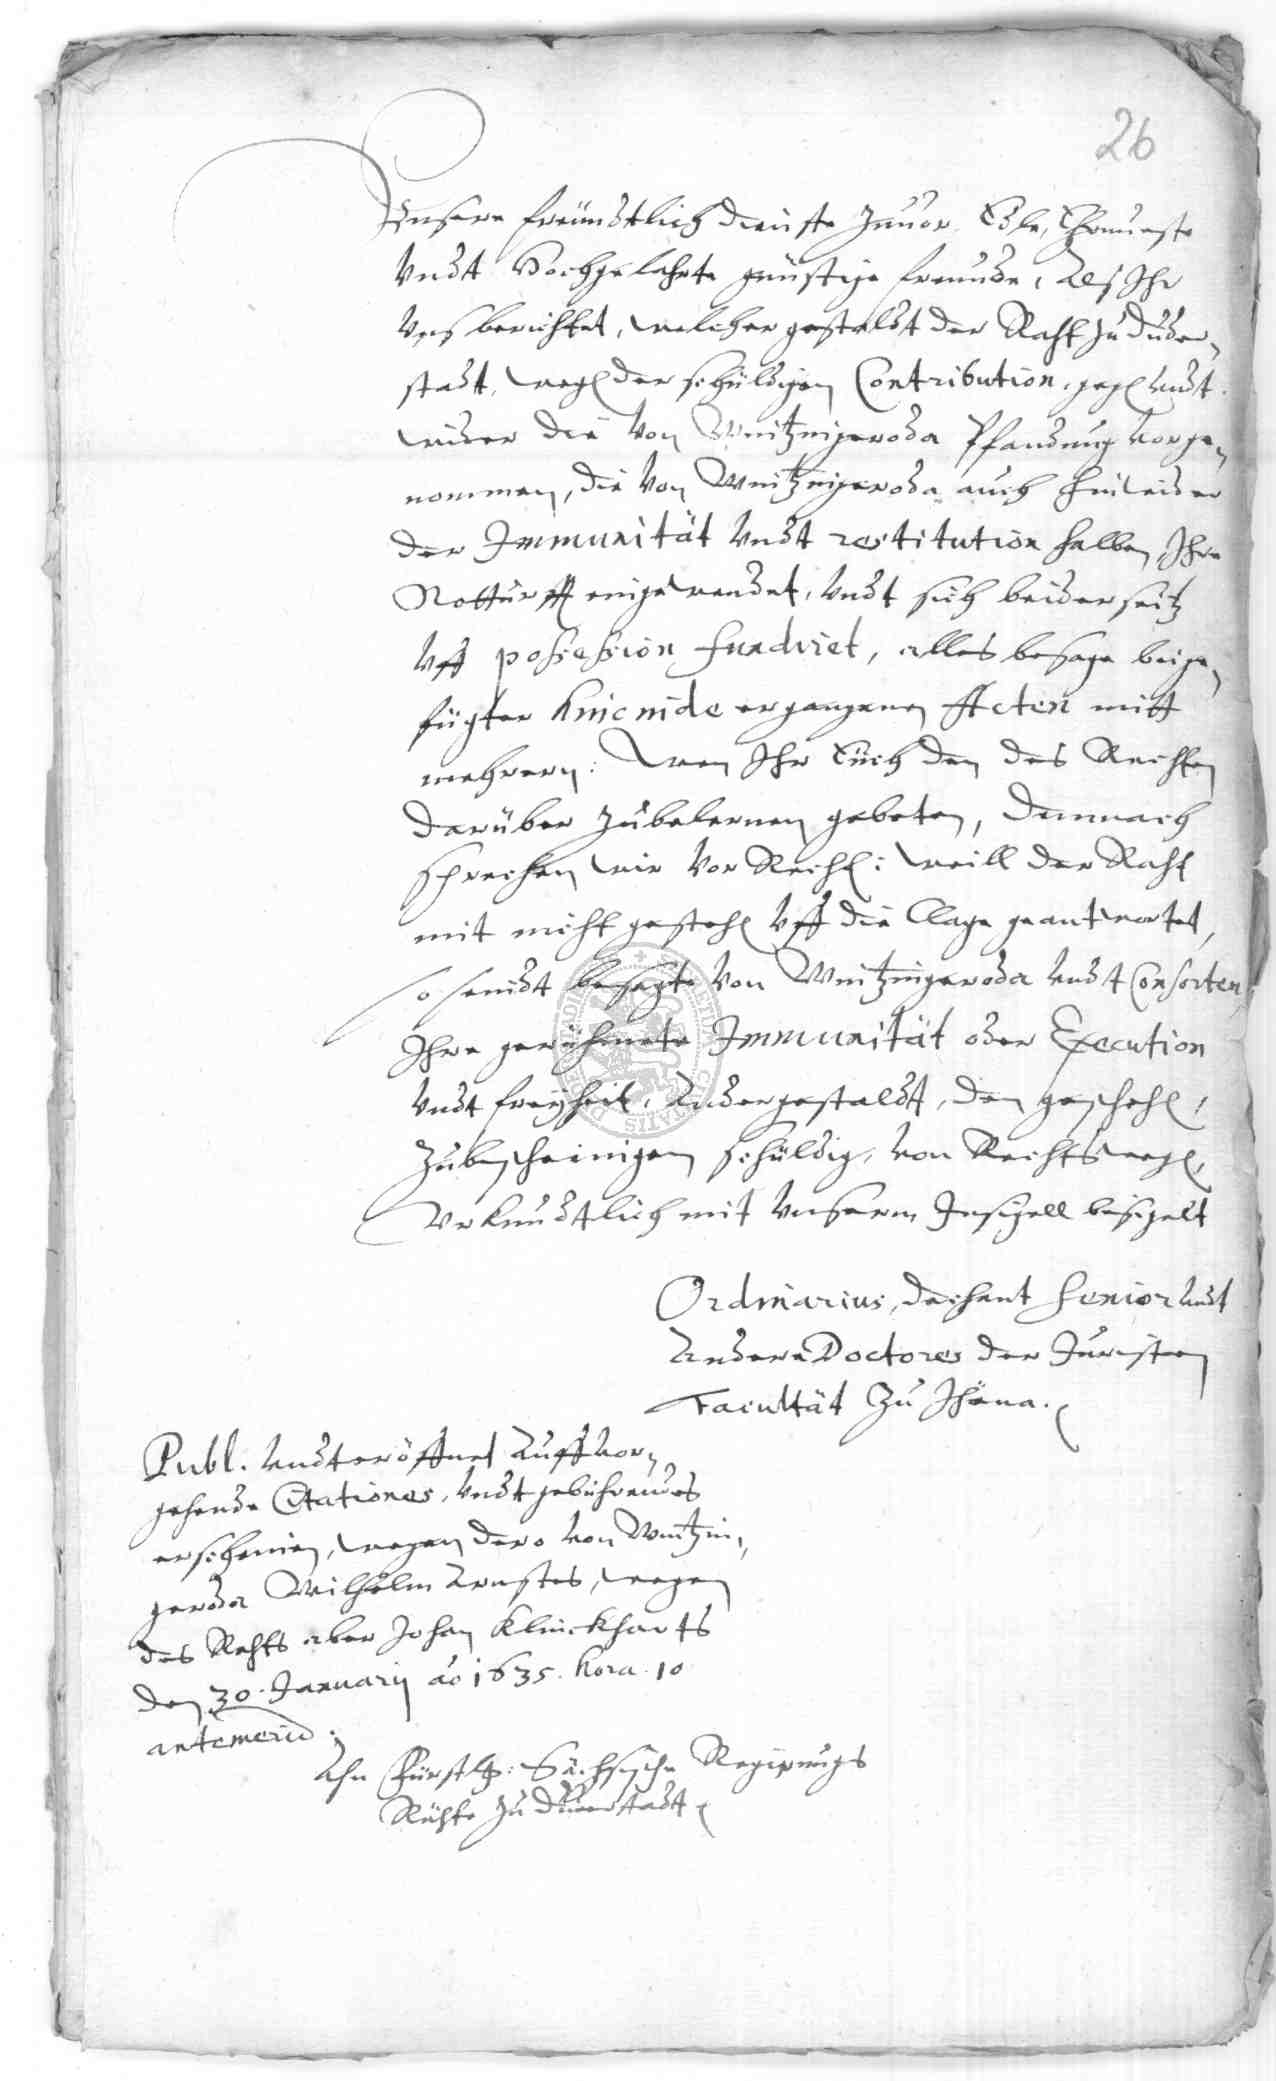 26
Unsere freundtlich dienste zuuor, Edle, Ehrnueste
Vndt Hochgelahrte günstige freunde, Als Ihr
Vns berichtet, welcher gestaldt der Raht zu Duder,
stadt, wegen der schüldigen Contribution, gegen vndt
wider die Von Wintzingeroda Pfandung vorge,
nommen, die Von Wintzingeroda auch hinwider
der Immunität Vndt restitution halben, Ihre
Notturfft eingewendet, Vndt sich beiderseitz
Vff possession fundiret, alles besage beige,
fügter ergangenen Acten mitt
mehrern: Wen Ihr Euch den des Rechten
darüber zubelernen gebeten, Demnach
sprechen wir Vor Recht: weill der Raht
mit nicht gestehen Vff die Clage geantwortet,
so seindt besagte Von Wintzingeroda vndt Consorten
Ihre gerühmete Immunität oder Exemtion
Vndt freyheit, Andergestaldt, den geschehen,
Zubescheinigen schüldig, von Rechts wegen,
Vrkundtlich mit Vnserm Insigell besigelt
Ordinarius, Dechant Senior vndt
Andere Doctores der Juristen
Facultät Zu Jhena.
Publ. vndt eröffnet Auff vor,
gehende Citationes, Vndt gebührendes
erscheinen, wegen dero von Wintzin,
geroda Wilhelm Ernstes, wegen
des Rahts aber Johan Klinckharts
den 30. Januarij ao 1635. hora 10
antemerid.
Ahn Fürstl: Sächsische Regirungs
Rähte zu Duderstadt